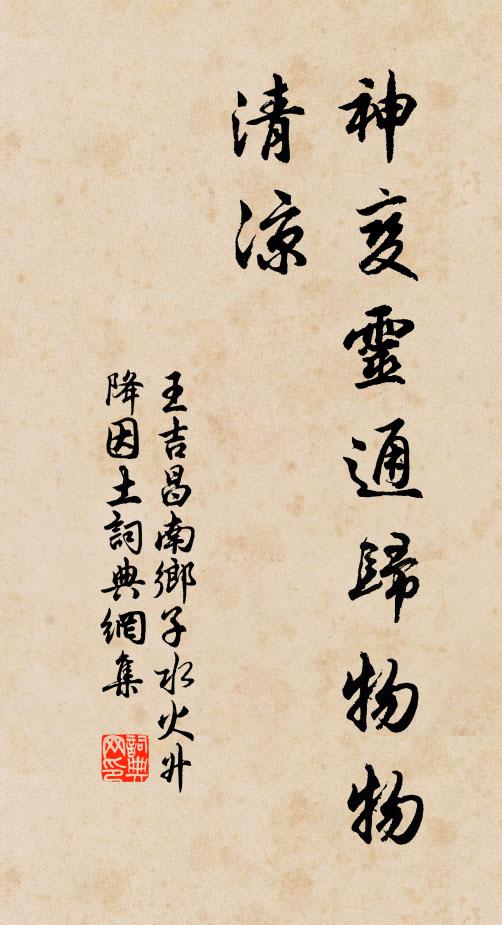 神变靈通歸物物
清涼
王吉昌南鄉子水火升
降因土詞典網集
詞典
网印